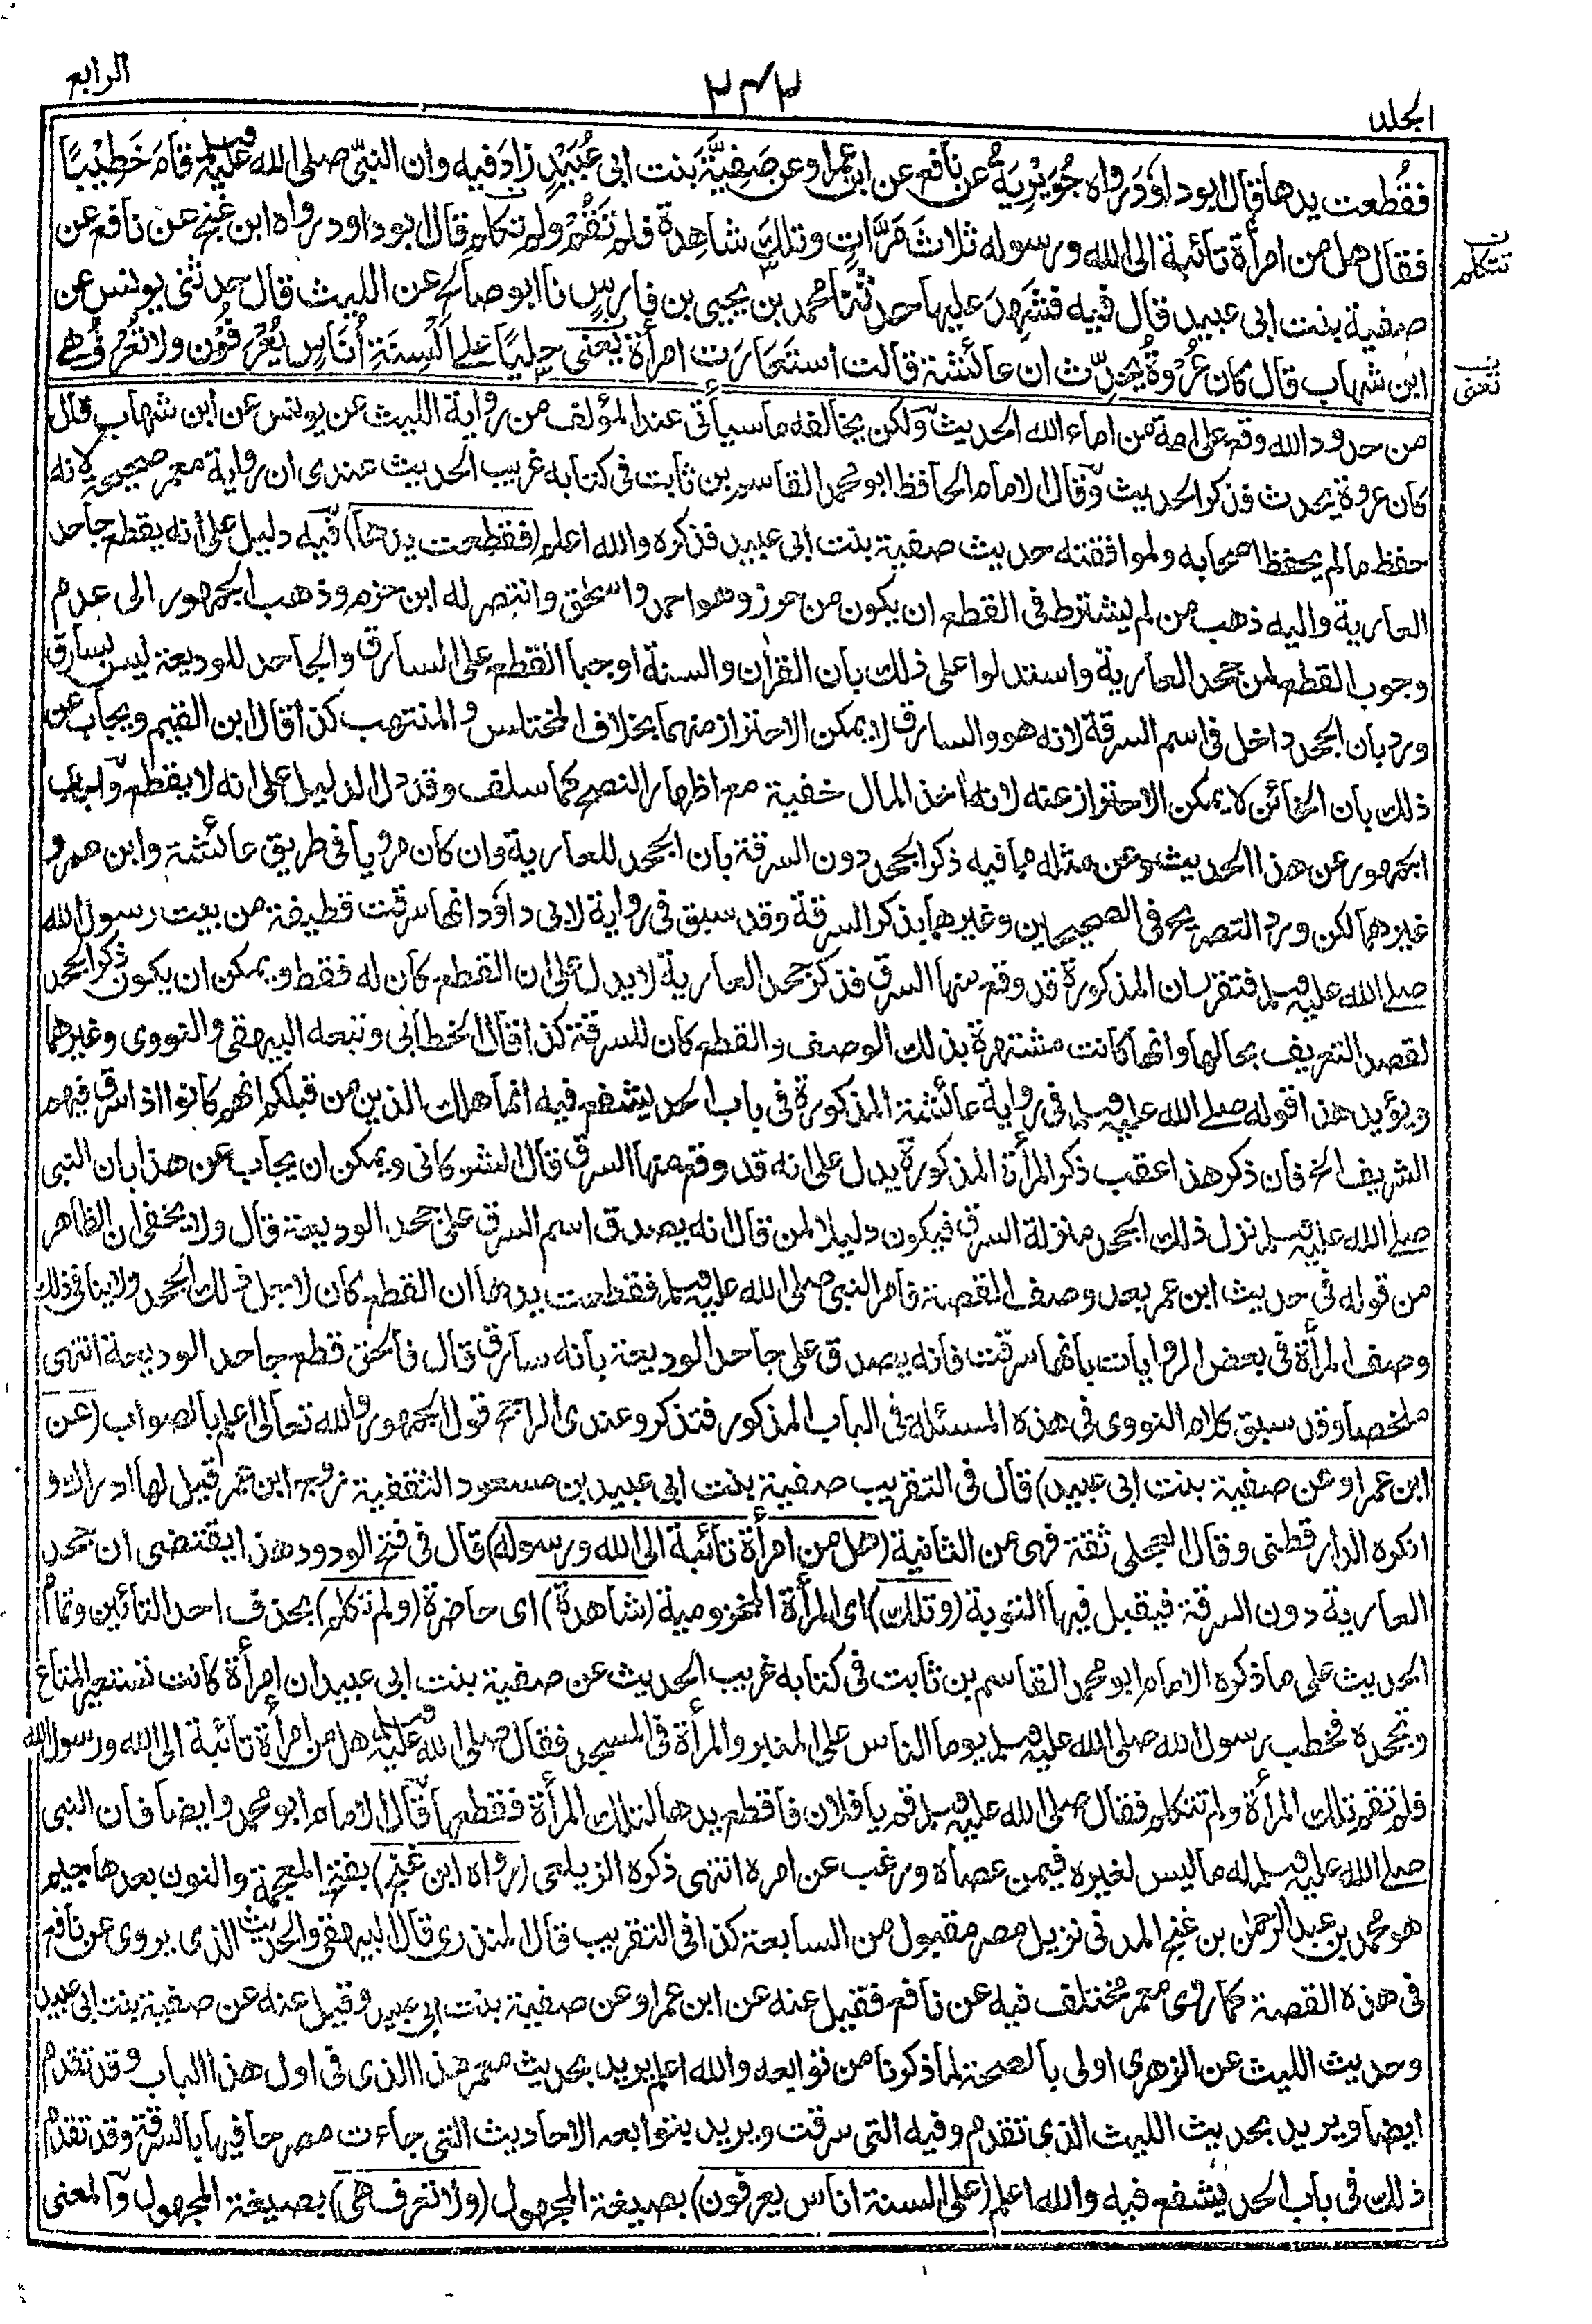 المجلد
٢٤٢
الرابع
فقُطعت يدها قال ابو داوَد رواه جُوَيْرِيَةُ عن نافع عن ابن عمر او عن صَفِيَّةَ بنت ابى عُبَيْدٍ زادَ فيه وان النبىّ صلى الله عليه وسلم قامَ خَطِيْبًا
فقال هل من امرأة تائبة الى الله ورسوله ثلاثَ مَرَّاتٍ وتلك شاهِدة فلم تَقُمْ ولم تكلم قال ابو داود رواه ابن غَنَج عن نافع عن
تتكلم
صفية بنت ابى عبيد قال فيه فشَهِدَ عليها حدثنا محمد بن يحيى بن فارسٍ نا ابو صالح عن الليث قال حدثنى يونس عن
ابن شهاب قال كان عُرْوةُ يُحَدِّث ان عائشة قالت استَعَارَت امرأة يعنى حِليًا على اَلْسِنَةِ اُنَاسٍ يُعْرَفُوْن ولا تُعْرَفُ هى
تعنى
من حدود الله وقع على امة من اماء الله الحديث ولكن يخالفه ما سيأتى عند المؤلف من رواية الليث عن يونس عن ابن شهاب قال
كان عروة يحدث فذكر الحديث وقال الامام الحافظ ابو محمد القاسم بن ثابت فى كتابه غريب الحديث عندى ان رواية معمر صحيحة لانه
حفظ ما لم يحفظ اصحابه ولموافقته حديث صفية بنت ابى عبيد فذكره والله اعلم (فقطعت يدها) فيه دليل على أنه يقطع جاحد
العارية واليه ذهب من لم يشترط فى القطع ان يكون من حرز وهو احمد واسحٰق وانتصر له ابن حزم وذهب الجمهور الى عدم
وجوب القطع لمن جحد العارية واستدلوا على ذلك بان القراٰن والسنة اوجبا القطع على السارق والجاحد للوديعة ليس بسارق
ورد بان الجحد داخل فى اسم السرقة لانه هو والسارق لا يمكن الاحتراز منهما بخلاف المختلس والمنتهب كذا قال ابن القيم ويجاب عن
ذلك بان الخائن لا يمكن الاحتراز عنه لانه أخذ المال خفية مع اظهار النصح كما سلف وقد دل الدليل على انه لا يقطع واجاب
الجمهور عن هذا الحديث وعن مثله مما فيه ذكر الجحد دون السرقة بان الجحد للعارية وان كان مرويا فى طريق عائشة وابن عمر و
غيرهما لكن ورد التصريح فى الصحيحين وغيرهما بذكر السرقة وقد سبق فى رواية لابى داؤد انها سرقت قطيفة من بيت رسول الله
صلى الله عليه وسلم فتقرر ان المذكورة قد وقع منها السرق فذكر جحد العارية لا يدل على ان القطع كان له فقط ويمكن ان يكون ذكر الجحد
لقصد التعريف بحالها وانها كانت مشتهرة بذلك الوصف والقطع كان للسرقة كذا قال الخطابى وتبعه البيهقى والنووى وغيرهما
ويؤيد هذا قوله صلى الله عليه وسلم فى رواية عائشة المذكورة فى باب الحد يشفع فيه انما هلك الذين من قبلكم انهم كانوا اذا سرق فيهم
الشريف الخ فان ذكر هذا عقب ذكر المرأة المذكورة يدل على انه قد وقع منها السرق قال الشوكانى ويمكن ان يجاب عن هذا بان النبى
صلى الله عليه وسلم نزل ذلك الجحد منزلة السرق فيكون دليلا لمن قال انه يصدق اسم السرق على جحد الوديعة قال ولا يخفى ان الظاهر
من قوله فى حديث ابن عمر بعد وصف القصة فامر النبى صلى الله عليه وسلم فقطعت يدها ان القطع كان لاجل ذلك الجحد ولا ينافى ذلك
وصف المرأة فى بعض الروايات بانها سرقت فانه يصدق على جاحد الوديعة بانه سارق قال فالحق قطع جاحد الوديعة انتهى
ملخصا وقد سبق كلام النووى فى هذه المسئلة فى الباب المذكور فتذكر وعندى الراجح قول الجمهور والله تعالى اعلم بالصواب (عن
ابن عمر او عن صفية بنت ابى عبيد) قال فى التقريب صفية بنت ابى عبيد بن مسعود الثقفية زوجه ابن عمر قيل لها ادراك و
انكره الدارقطنى وقال العجلى ثقة فهى من الثانية (هل من امرأة تائبة الى الله ورسوله) قال فى فتح الودود هذا يقتضى ان جحد
العارية دون السرقة فيقبل فيها التوبة (وتلك) اى المرأة المخزومية (شاهدة) اى حاضرة (ولم تكلم) بحذف احد التائين وتمام
الحديث على ما ذكره الامام ابو محمد القاسم بن ثابت فى كتابه غريب الحديث عن صفية بنت ابى عبيد ان امرأة كانت تستعير المتاع
وتجحده فخطب رسول الله صلى الله عليه وسلم يوما الناس على المنبر والمرأة فى المسجد فقال صلى الله عليه وسلم هل من امرأة تائبة الى الله ورسول الله
فلم تقم تلك المرأة ولم تتكلم فقال صلى الله عليه وسلم قم يا فلان فاقطع يدها لتلك المرأة فقطعها قال الامام ابو محمد وايضا فان النبى
صلى الله عليه وسلم له ما ليس لغيره فيمن عصاه ورغب عن امره انتهى ذكره الزيلعى (رواه ابن غنج) بفتح المعجمة والنون بعدها جيم
هو محمد بن عبد الرحمٰن بن غنج المدنى نزيل مصر مقبول من السابعة كذا فى التقريب قال المنذرى قال البيهقى والحديث الذى يروى عن نافع
فى هذه القصة كما روى معمر مختلف فيه عن نافع فقيل عنه عن ابن عمر او عن صفية بنت ابى عبيد وقيل عنه عن صفية بنت ابى عبيد
وحديث الليث عن الزهرى اولى بالصحة لما ذكرنا من توابعه والله اعلم يريد بحديث معمر هذا الذى فى اول هذا الباب وقد تقدم
ايضا ويريد بحديث الليث الذى تقدم وفيه التى سرقت ويريد بتوابعه الاحاديث التى جاءت مصرحا فيها بالسرقة وقد تقدم
ذلك فى باب الحد يشفع فيه والله اعلم (على السنة اناس يعرفون) بصيغة المجهول (ولا تعرف هى) بصيغة المجهول والمعنى